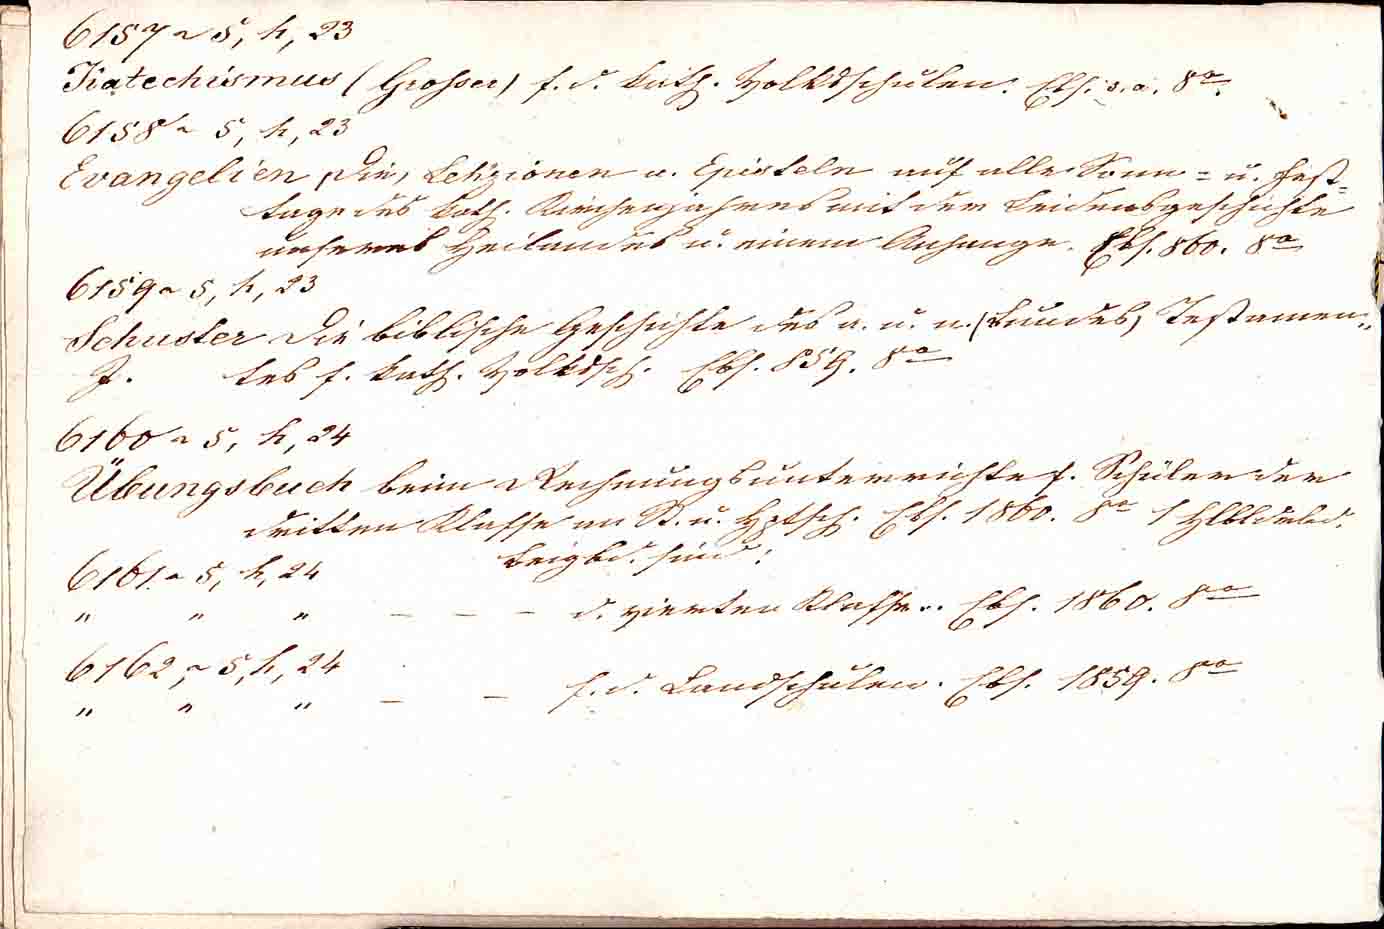 6157 ~ 5, h, 23
Katechismus (Grosser) f. d. kath. Volksschulen. Ebs. s. a. 8°.
6158 ~ 5, h, 23
Evangelien, Die, Lekzionen u. Episteln auf alle Sonn= u. Fest=
tage des kath. Kirchenjahres mit der Leidensgeschichte
unseres Heilandes u. einem Anhange. Ebs. 860. 8°
6159 ~ 5, h, 23
Schuster Die biblische Geschichte des a. u. n. (Bundes) Testamen„
J. tes f. kath. Volkssch. Ebs. 859. 8°
6160 ~ 5, h, 24
Übungsbuch beim Rechnungsunterrichte f. Schüler der
dritten Klasse an St. u. Hptsch. Ebs. 1860. 8° 1 Hlbldrbd.
Beigbd. sind:
6161 ~ 5, h, 24
„ „ „ — — — d. vierten Klasse.. Ebs. 1860. 8°
6162, ~ 5, h, 24
„ „ „ — — f. d. Landschulen. Ebs. 1859. 8°